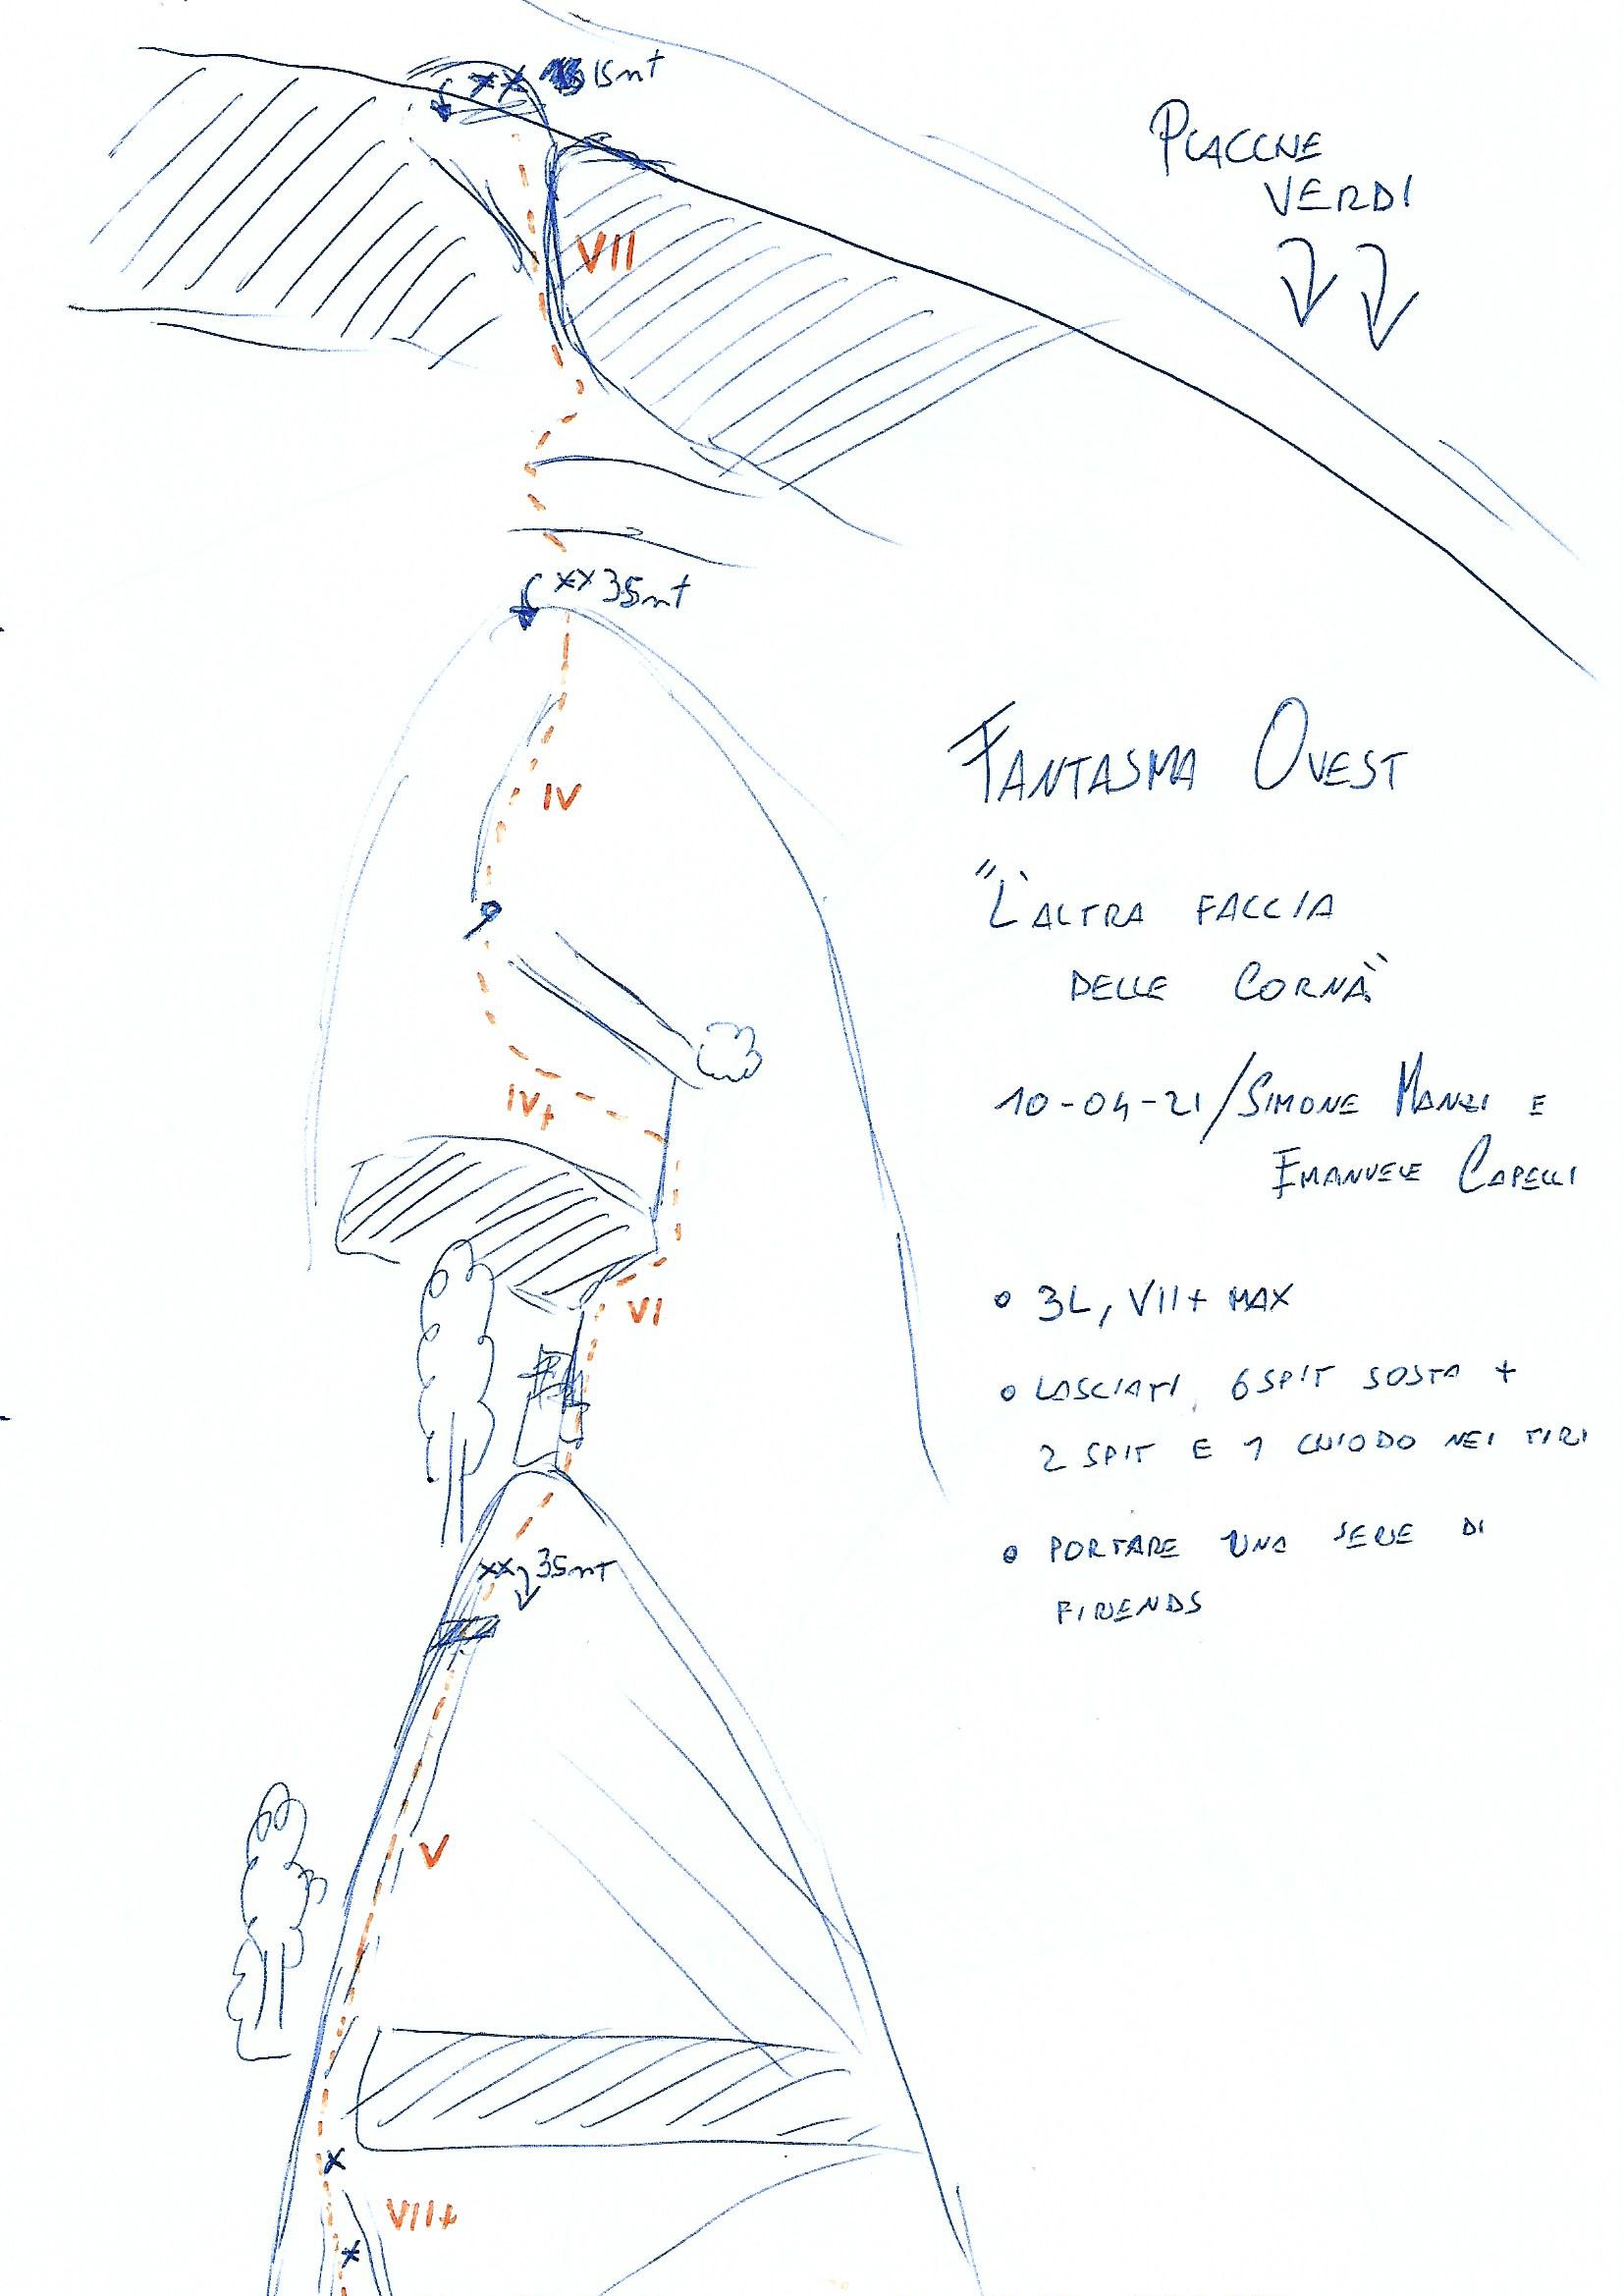 15mt
PLACCHE
VERDI
VII
xx 35mt
FANTASMA OVEST
IV
"L'ALTRA FACCIA
DELLE CORNA"
IV+
10-04-21/SIMONE MANZI E
EMANUELE CAPELLI
VI
• 3L, VII+ MAX
• LASCIATI 6 SPIT SOSTA +
2 SPIT E 1 CHIODO NEI TIRI
• PORTARE UNA SERIE DI
FIRENDS
xx 35mt
V
VII+